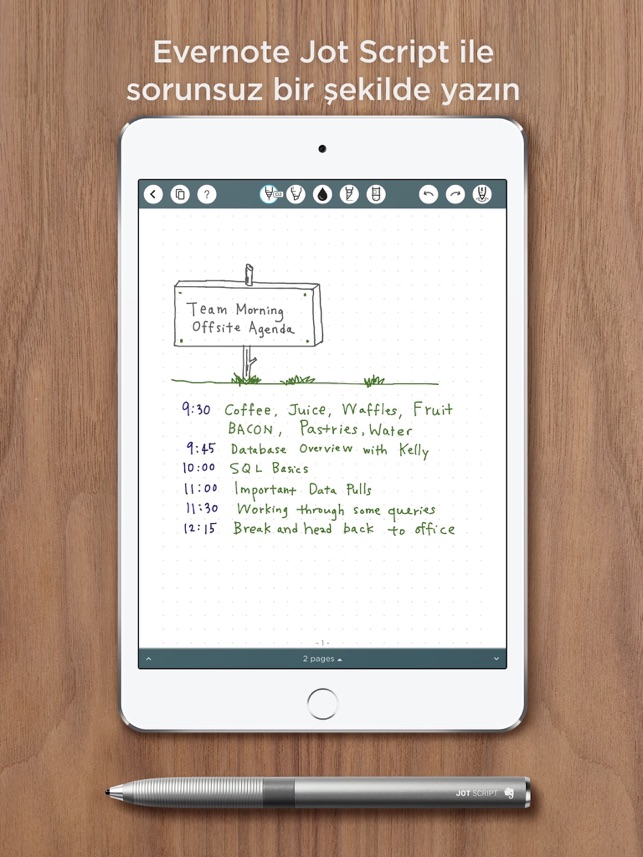 Evernote Jot Script ile
sorunsuz bir şekilde yazın
?
Team Morning
Offsite Agenda
9:30 Coffee, Juice, Waffles, Fruit
BACON, Pastries, Water
9:45 Database Overview with Kelly
10:00 SQL Basics
11:00 Important Data Pulls
11:30 Working through some queries
12:15 Break and head back to office
- 1 -
2 pages
JOT SCRIPT